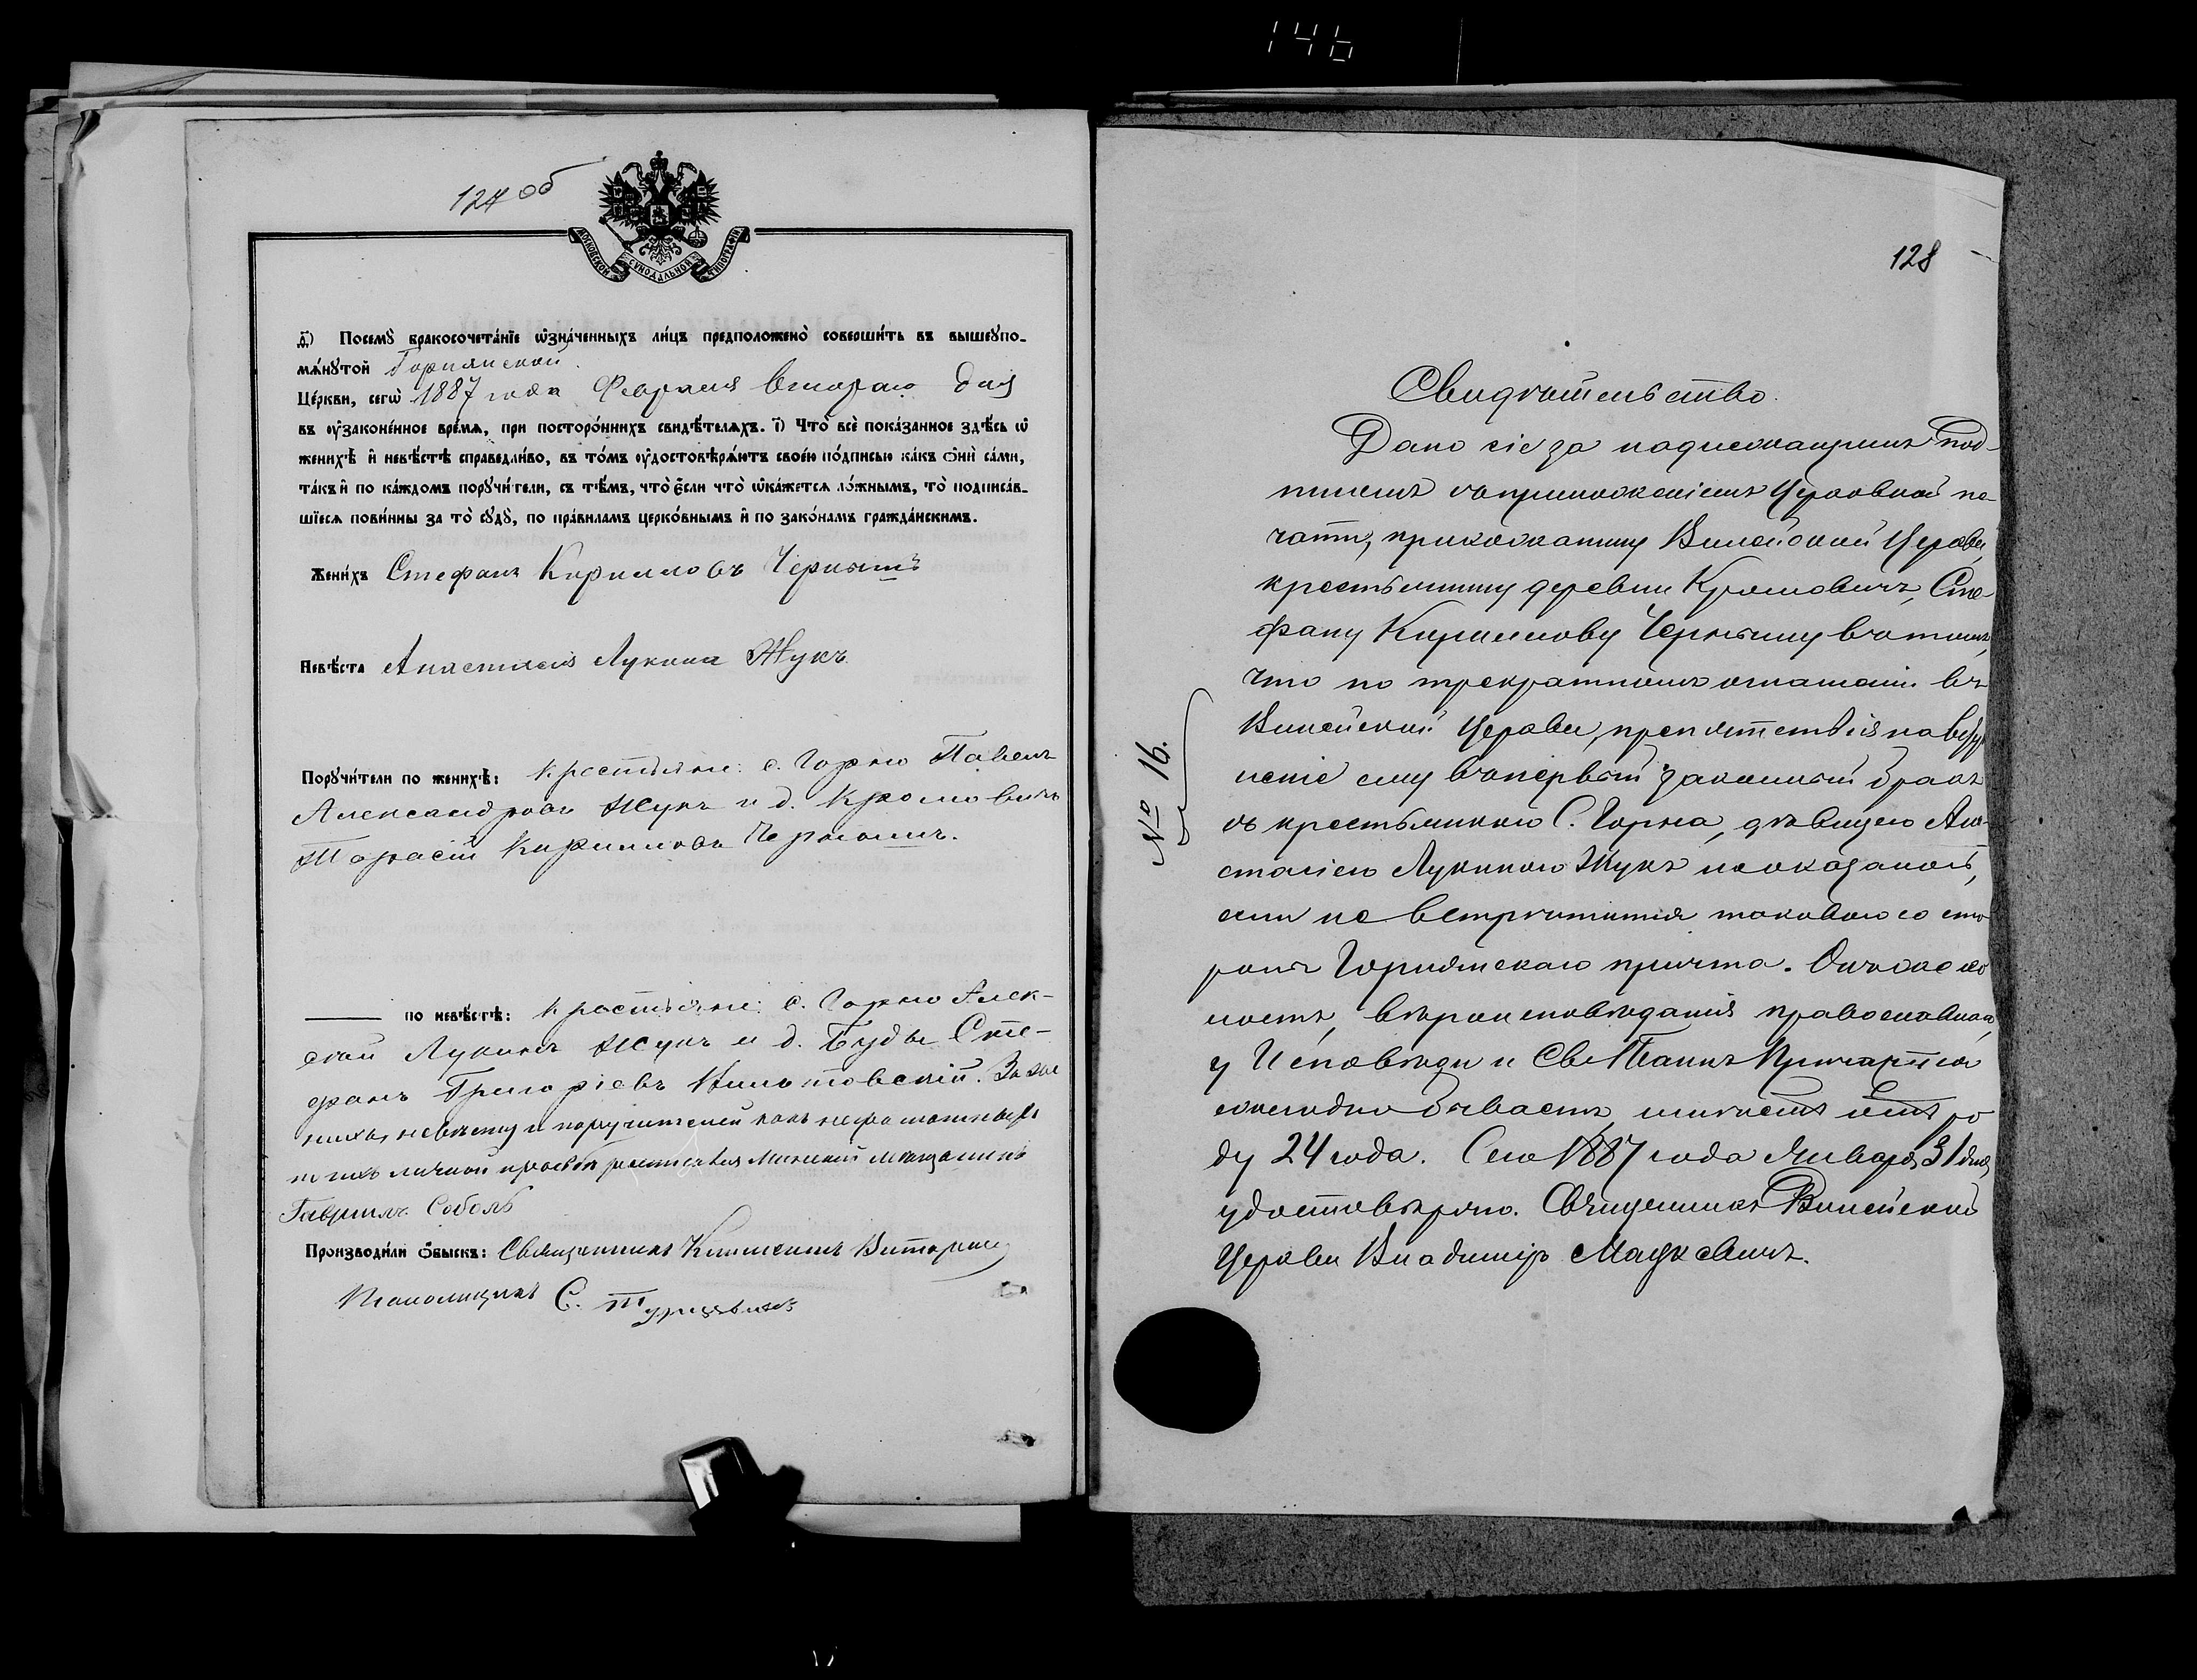 146
124 об
МОСКОВСКОЙ СУНОДАЛЬНОЙ ТИПОГРАФІИ
д҃) Посемꙋ̀ бракосочета́нїе ѡ҆зна́ченныхъ ли́цъ предположено̀ соверши́ть въ вышеꙋпо-
мѧ́нꙋтой Горнянской
Це́ркви, сегѡ̀ 1887 года Февраля втораго дня
въ ᲂу҆законе́нное вре́мѧ, при посторо́ннихъ свидѣ́телѧхъ. і҃) Что̀ всѐ пока́занное здѣ́сь ѡ҆
женихѣ̀ и҆ невѣ́стѣ справедли́во, въ то́мъ ᲂу҆достовѣрѧ́ютъ свое́ю по́дписью ка́къ ѻ҆нѝ са́ми,
та́къ и҆ по ка́ждомъ порꙋчи́тели, съ тѣ́мъ, что̀ є҆́сли что̀ ѡ҆ка́жетсѧ ло́жнымъ, то̀ подписа́в-
шїесѧ пови́нны за то̀ сꙋдꙋ̀, по пра́виламъ церко́внымъ и҆ по зако́намъ гражда́нскимъ.
Жени́хъ Стефанъ Кирилловъ Чернышъ
Невѣ́ста Анастасія Лукина Жукъ
Порꙋчи́тели по женихѣ̀: Крестьяне: с. Горно Павелъ
Александровъ Жукъ и д. Кромовичъ
Тарасій Кирилловъ Чернышъ.
по невѣ́стѣ: крестьяне: с. Горно Алек-
сѣй Лукинъ Жукъ и д. Буды Сте-
фанъ Григорьевъ. За же
ниха, невѣсту и поручителей какъ неграмотныхъ
по ихъ личной просьбѣ росписался Минскій мѣщанинъ
Гавріилъ Соболь
Производи́ли ѻ҆́быскъ: Священникъ Климентъ
Псаломщикъ С.
128
Свидѣтельство.
Дано сіе за надлежащимъ под-
писомъ съ приложеніемъ Церковной пе-
чати, прихожанину Вилейской Церкви,
крестьянину деревни Кромовичъ, Сте-
фану Кириллову Чернышу въ томъ,
что по трекратномъ оглашеніи въ
Вилейской Церкви, препятствія на вступ
леніе ему въ первый законный бракъ
съ крестьянкою С. Горна, дѣвицею Ана-
стасіею Лукиною Жукъ не оказалось,
если не встрѣтится таковаго со сто
роны Горнянскаго причта. Онъ же хо
лостъ, вѣроисповѣданія православнаго,
у Исповѣди и Св. Таинъ Причастія
ежегодно бываетъ, имѣетъ отъ ро
ду 24 года. Сего 1887 года Января 31 дня
удостовѣряю. Священникъ Вилейской
Церкви Владиміръ Мацкевичъ.
№ 16.